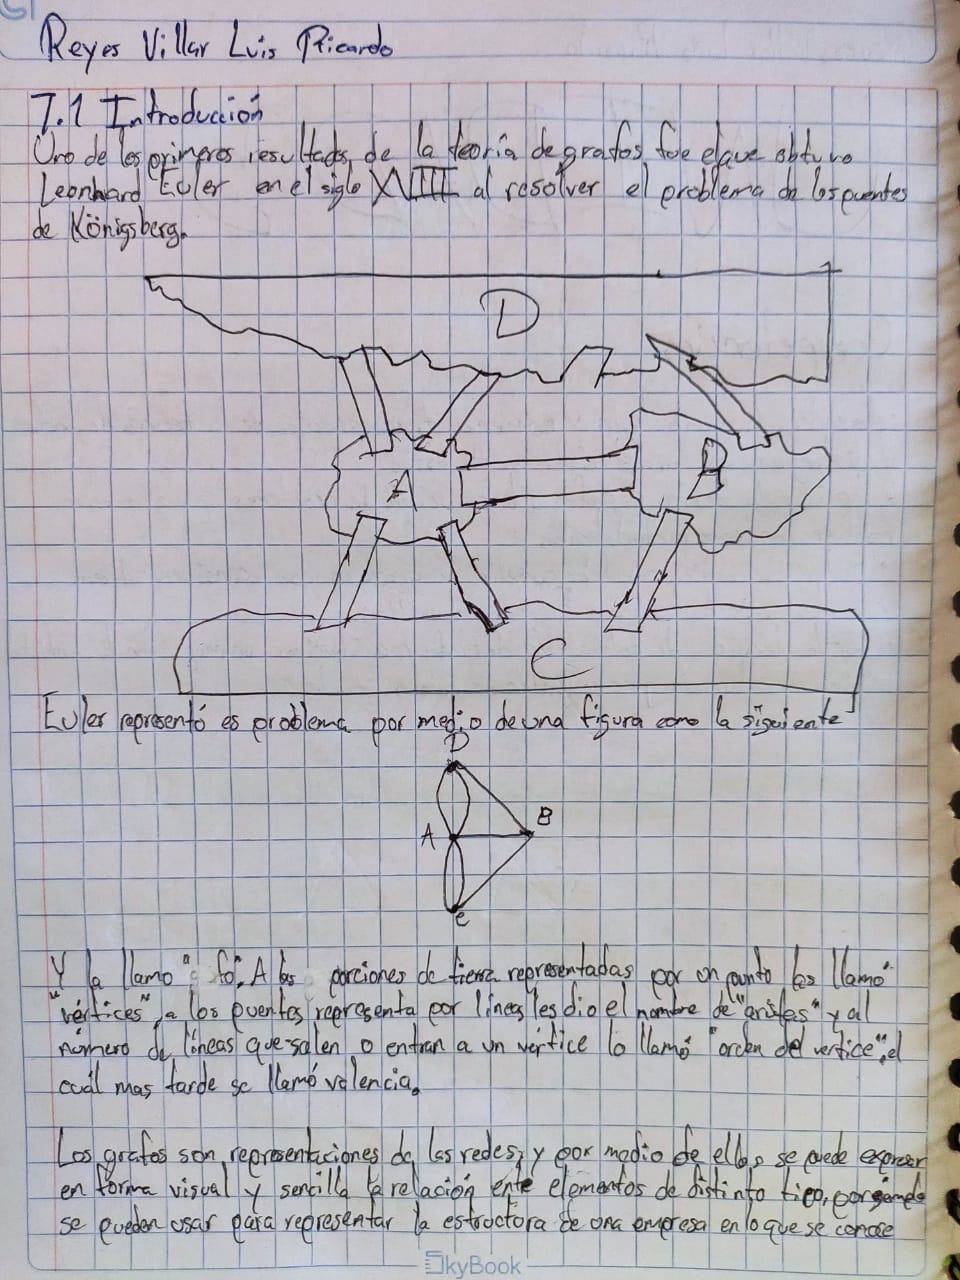 Reyes Villar Luis Ricardo
7.1 Introducción
Uno de los primeros resultados de la teoría de grafos fue el que obtuvo
Leonhard Euler en el siglo XVIII al resolver el problema de los puentes
de Königsberg.
D
A
B
C
Euler representó es problema por medio de una figura como la siguiente
D
A
B
C
Y la llamo "fo". A las porciones de tierra representadas por un punto las llamó
"vértices", a los puentes representa por líneas les dio el nombre de "aristas" y al
número de líneas que salen o entran a un vértice lo llamó "orden del vertice", el
cuál mas tarde se llamó valencia.
Los grafos son representaciones de las redes, y por medio de ellos se puede expresar
en forma visual y sencilla la relación ente elementos de distinto tipo, por ejemplo
se pueden usar para representar la estructura de una empresa en lo que se conoce
SkyBook